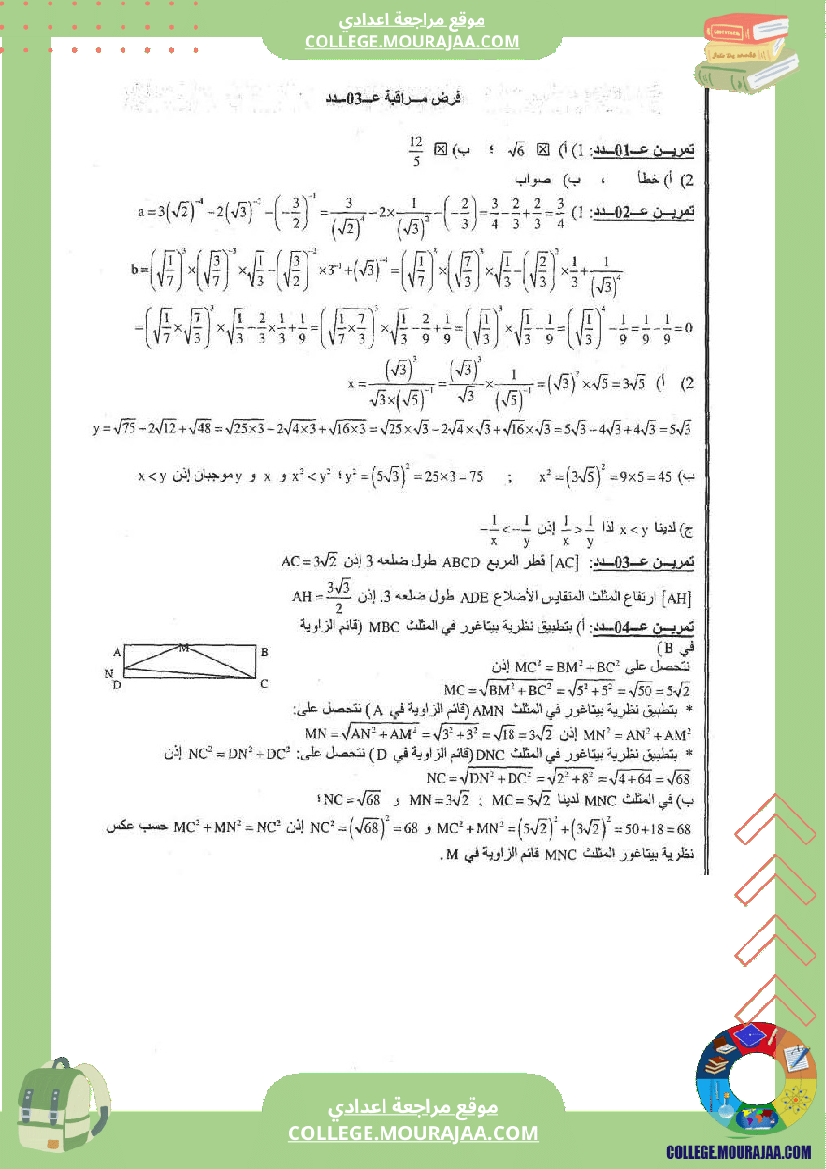 موقع مراجعة اعدادي
COLLEGE.MOURAJAA.COM
فرض مـــراقبة عــ03ــدد
تمريـــن عــ01ــدد: 1) أ) ☒ √6 ؛ ب) ☒ 12/5
2) أ) خطأ ، ب) صواب
تمريـــن عــ02ــدد: 1) a = 3(√2)⁻⁴ − 2(√3)⁻² − (−3/2)⁻¹ = 3/(√2)⁴ − 2×1/(√3)² − (−2/3) = 3/4 − 2/3 + 2/3 = 3/4
b = (√(1/7))³ × (√(3/7))⁻³ × √(1/3) − (√(3/2))⁻² × 3⁻¹ + (√3)⁻⁴ = (√(1/7))³ × (√(7/3))³ × √(1/3) − (√(2/3))² × 1/3 + 1/(√3)⁴
= (√(1/7) × √(7/3))³ × √(1/3) − 2/3 × 1/3 + 1/9 = (√(1/7 × 7/3))³ × √(1/3) − 2/9 + 1/9 = (√(1/3))³ × √(1/3) − 1/9 = (√(1/3))⁴ − 1/9 = 1/9 − 1/9 = 0
2) أ) x = (√3)³/(√3×(√5)⁻¹) = (√3)³/√3 × 1/(√5)⁻¹ = (√3)² × √5 = 3√5
y = √75 − 2√12 + √48 = √25×3 − 2√4×3 + √16×3 = √25 × √3 − 2√4 × √3 + √16 × √3 = 5√3 − 4√3 + 4√3 = 5√3
ب) x² = (3√5)² = 9×5 = 45 ; y² = (5√3)² = 25×3 = 75 ؛ x² < y² و x و y موجبان إذن x < y
ج) لدينا x < y لذا 1/x > 1/y إذن −1/x < −1/y
تمريـــن عــ03ــدد: [AC] قطر المربع ABCD طول ضلعه 3 إذن AC = 3√2
[AH] ارتفاع المثلث المتقايس الأضلاع ADE طول ضلعه 3. إذن AH = 3√3/2
تمريـــن عــ04ــدد: أ) بتطبيق نظرية بيتاغور في المثلث MBC (قائم الزاوية
في B)
A M B
N
D C
نتحصل على MC² = BM² + BC² إذن
MC = √BM² + BC² = √5² + 5² = √50 = 5√2
* بتطبيق نظرية بيتاغور في المثلث AMN (قائم الزاوية في A) نتحصل على:
MN² = AN² + AM² إذن MN = √AN² + AM² = √3² + 3² = √18 = 3√2
* بتطبيق نظرية بيتاغور في المثلث DNC (قائم الزاوية في D) نتحصل على: NC² = DN² + DC² إذن
NC = √DN² + DC² = √2² + 8² = √4 + 64 = √68
ب) في المثلث MNC لدينا MC = 5√2 ; MN = 3√2 و NC = √68 ؛
MC² + MN² = (5√2)² + (3√2)² = 50 + 18 = 68 و NC² = (√68)² = 68 إذن MC² + MN² = NC² حسب عكس
نظرية بيتاغور المثلث MNC قائم الزاوية في M .
موقع مراجعة اعدادي
COLLEGE.MOURAJAA.COM
COLLEGE.MOURAJAA.COM